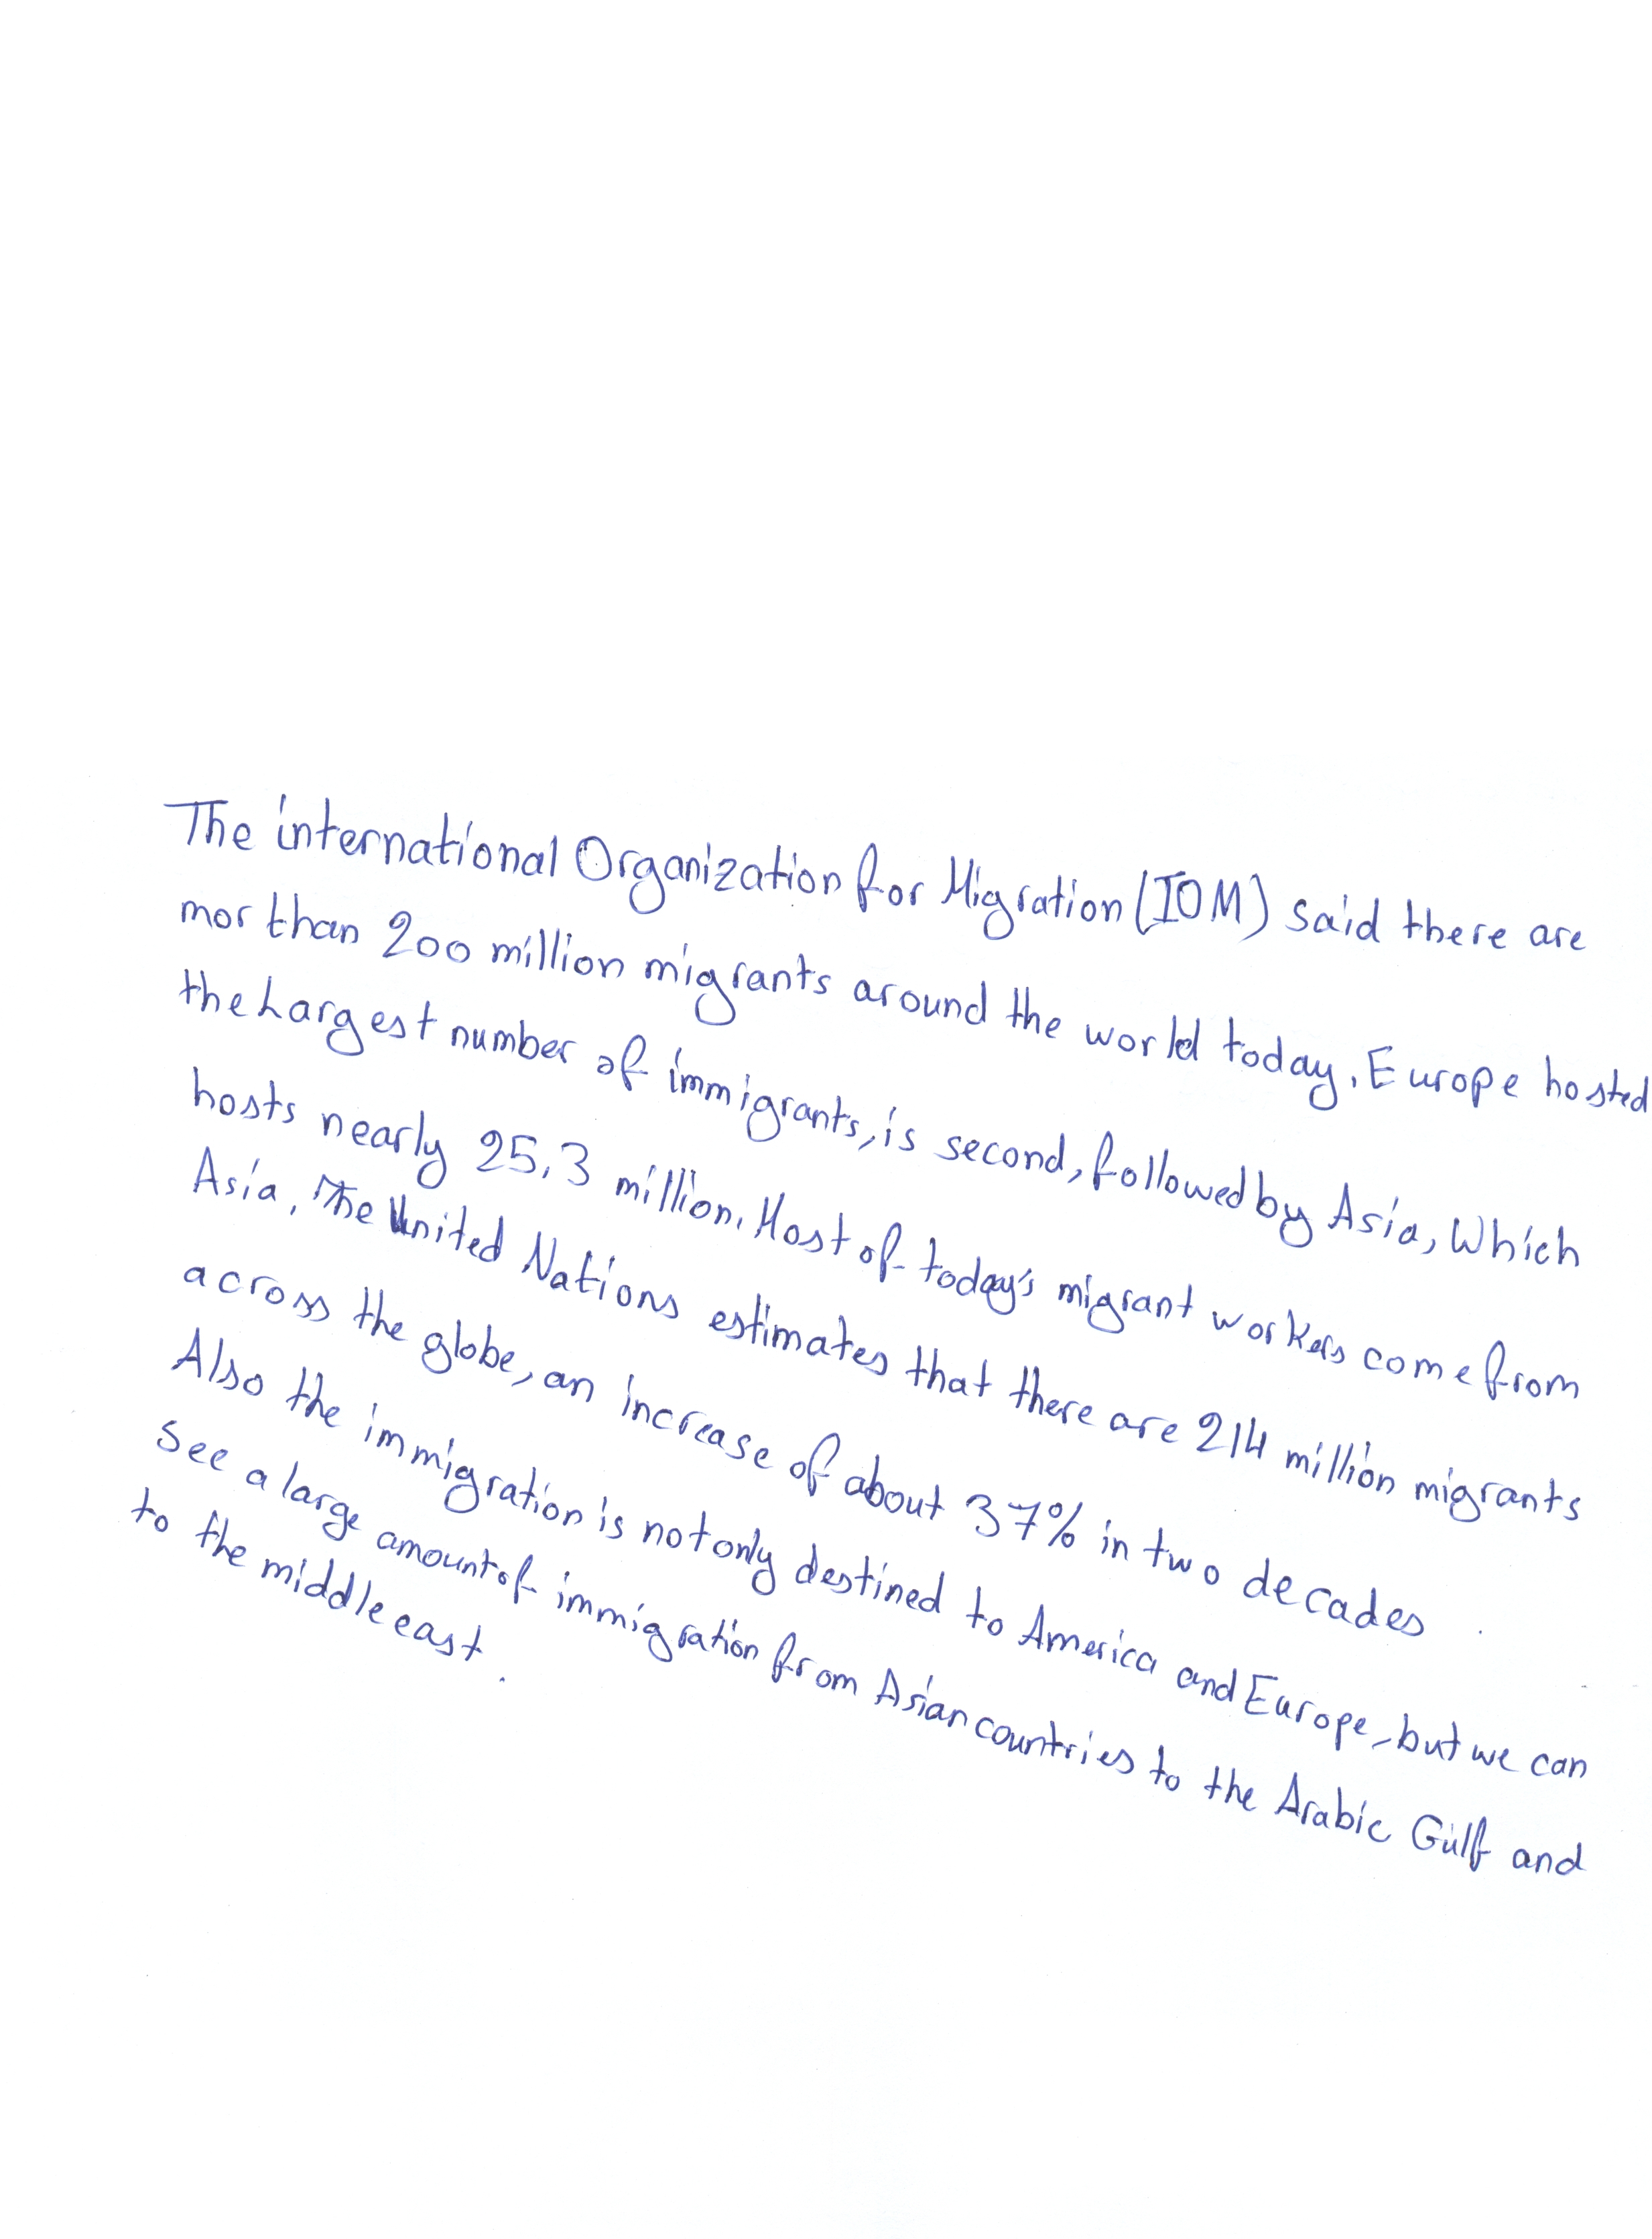 The international Organization for Migration (IOM) said there are
mor than 200 million migrants around the world today. Europe hosted
the Largest number of immigrants, is second, followed by Asia, Which
hosts nearly 25.3 million. Most of today's migrant workers come from
Asia. The United Nations estimates that there are 214 million migrants
across the globe, an increase of about 37% in two decades.
Also the immigration is not only destined to America and Europe, but we can
see a large amount of immigration from Asian countries to the Arabic Gulf and
to the middle east.